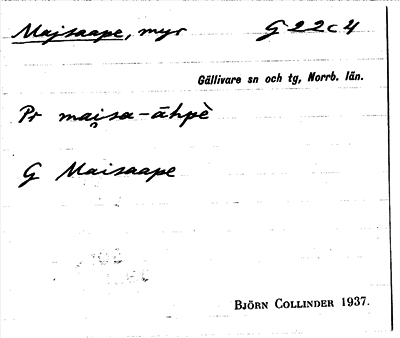 Majsaape, myr G 22c4
Gällivare sn och tg, Norrb. län.
Pr mai̯sa-āhpè
G Maisaape
BJÖRN COLLINDER 1937.